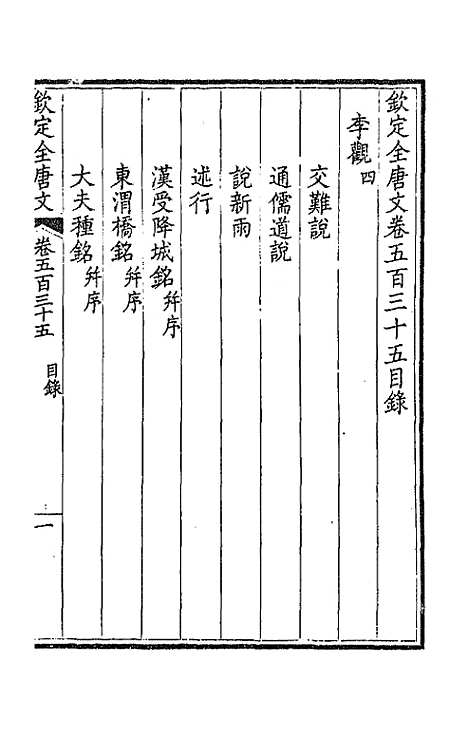 欽定全唐文卷五百三十五目錄
李觀四
交難說
通儒道說
說新雨
述行
漢受降城銘并序
東渭橋銘并序
大夫種銘并序
欽定全唐文 卷五百三十五 目錄 一